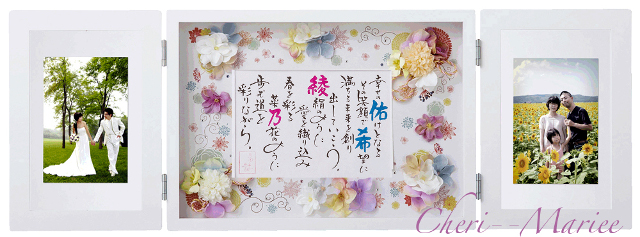 幸せの佑けとなる
その笑顔で希望に
満ちた未来を創り
出していこう。
綾絹のように
愛を織り込み
春を彩る
菜乃花のように
歩む道を
彩りながら。
Cheri--Mariee